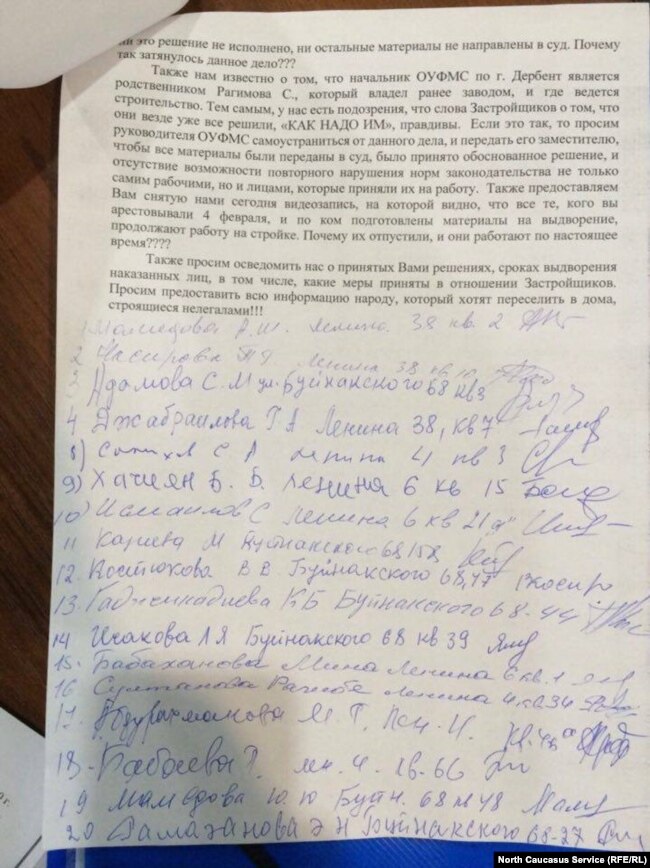 ни это решение не исполнено, ни остальные материалы не направлены в суд. Почему
так затянулось данное дело???
Также нам известно о том, что начальник ОУФМС по г. Дербент является
родственником Рагимова С., который владел ранее заводом, и где ведется
строительство. Тем самым, у нас есть подозрения, что слова Застройщиков о том, что
они везде уже все решили, «КАК НАДО ИМ», правдивы. Если это так, то просим
руководителя ОУФМС самоустраниться от данного дела, и передать его заместителю,
чтобы все материалы были переданы в суд, было принято обоснованное решение, и
отсутствие возможности повторного нарушения норм законодательства не только
самим рабочими, но и лицами, которые приняли их на работу. Также предоставляем
Вам снятую нами сегодня видеозапись, на которой видно, что все те, кого вы
арестовывали 4 февраля, и по ком подготовлены материалы на выдворение,
продолжают работу на стройке. Почему их отпустили, и они работают по настоящее
время????
Также просим осведомить нас о принятых Вами решениях, сроках выдворения
наказанных лиц, в том числе, какие меры приняты в отношении Застройщиков.
Просим предоставить всю информацию народу, который хотят переселить в дома,
строящиеся нелегалами!!!
1 Мамедова А.Ш. Ленина 38 кв. 2
2 Насирова Ленина 38 кв
3 Адамова С. М ул. Буйнакского 68 кв 3
4 Джабраилова Г А Ленина 38, кв 7
8) С А Ленина 4 кв 3
9) Хачиян Б. Б. Ленина 6 кв 15
10) Исмаилов С Ленина 6 кв 21
11 Кариева М Буйнакского 68
12. Костюкова В В. Буйнакского 68, 47
13. К Б Буйнакского 68-44
14 Исакова Л Я Буйнакского 68 кв 39
15. Бабаханова Мина Ленина 6 кв. 1
16 Султанова Ленина 4 кв 34
17. Абдурахманова М. Г. Лен-4.
18. Бабаева Г. лен. 4. кв-66
19 Мамедова Ю. Ю Буйн. 68 кв 48
20 Рамазанова Э Н Буйнакского 68-27
North Caucasus Service (RFE/RL)